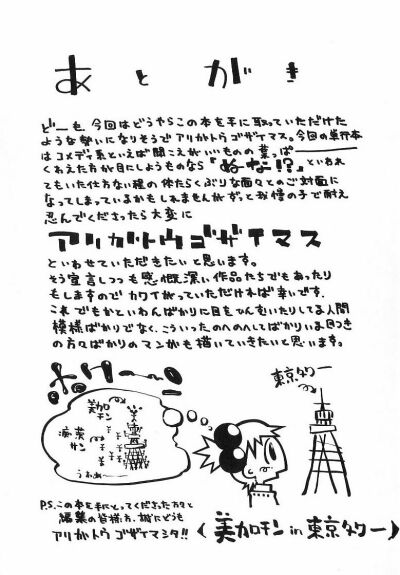 あとがき
どーも、今回はどうやらこの本を手に取っていただけた
ような勢いになりそうでアリガトウゴザイマス。今回の単行本
はコメディ系といえば聞こえがいいものの葉っぱ
くわえた方が目にしようものなら「ぬーな!?」といわれ
てもいた仕方ない程の体たらくぶりな面々とのご対面に
なってしまっているかもしれませんがずっと我慢の子で耐え
忍んでくださったら大変に
アリガトウゴザイマス
といわせていただきたいと思います。
そう宣言しつつも感慨深い作品たちでもあったり
もしますのでカワイがっていただければ幸いです。
これでもかといわんばかりに目をつんむいたりしてる人間
模様ばかりでなく、こういったのへのへしてばかりいる目つき
の方々ばかりのマンガも描いていきたいと思います。
東京タワー
美カロチン
うわぁー
P.S. この本を手にとってくださった方々と
編集の皆様方、誠にどうも
アリガトウゴザイマシタ!!
(美カロチン in 東京タワー)